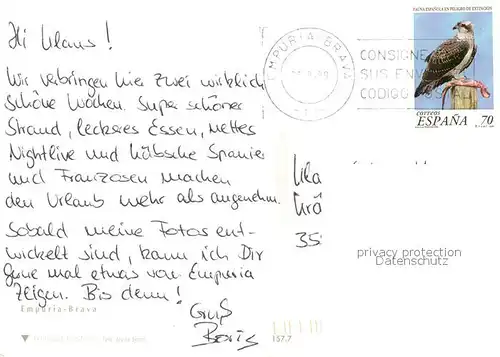 Hi Klaus!
Wir verbringen hier zwei wirklich
schöne Wochen. Super schöner
Strand, leckeres Essen, nettes
Nightlive und hübsche Spanier
und Franzosen machen
den Urlaub mehr als angenehm.
Sobald meine Fotos ent-
wickelt sind, kann ich Dir
gerne mal etwas von Empuria
zeigen. Bis denn!
Gruß
Boris
Empuria-Brava
157.7
FAUNA ESPAÑOLA EN PELIGRO DE EXTINCION
correos
ESPAÑA 70
EMPURIA BRAVA
CONSIGNE
SUS ENV
CODIGO POSTAL
35
privacy protection
Datenschutz